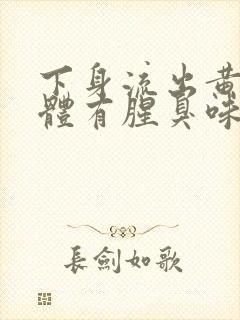 下身流出黄
體有腥臭味
長劍如歌